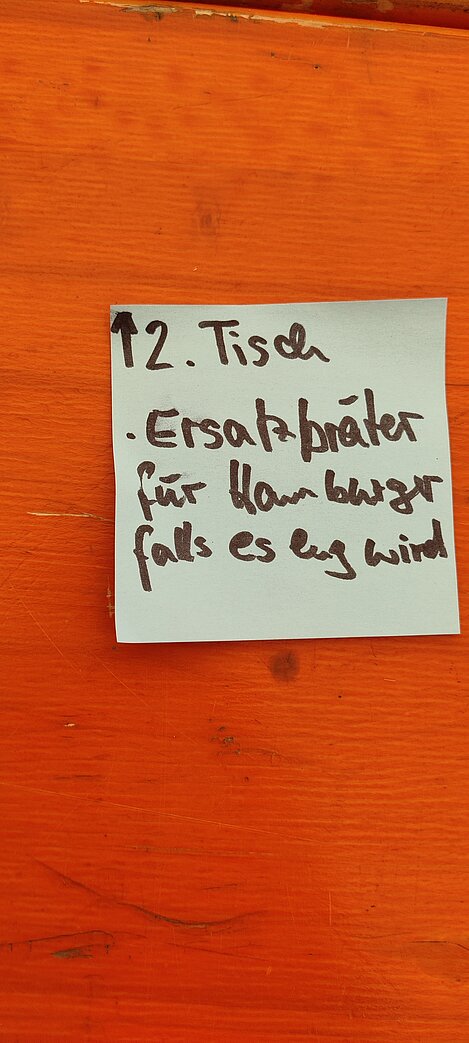 ↑ 2. Tisch
. Ersatzbräter
für Hamburger
falls es eng wird